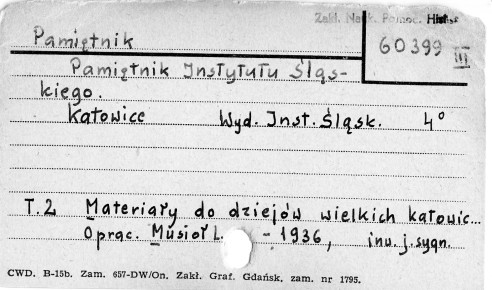 Zakł. Nauk. Pomoc. Hist.
Pamiętnik
60399
III
Pamiętnik Instytutu Śląs-
kiego.
Katowice Wyd. Inst. Śląsk. 4°
T.2 Materiały do dziejów wielkich katowic...
Oprac. Musioł L. - 1936, inw. j. sygn.
CWD. B-15b. Zam. 657-DW/On. Zakł. Graf. Gdańsk, zam. nr 1795.